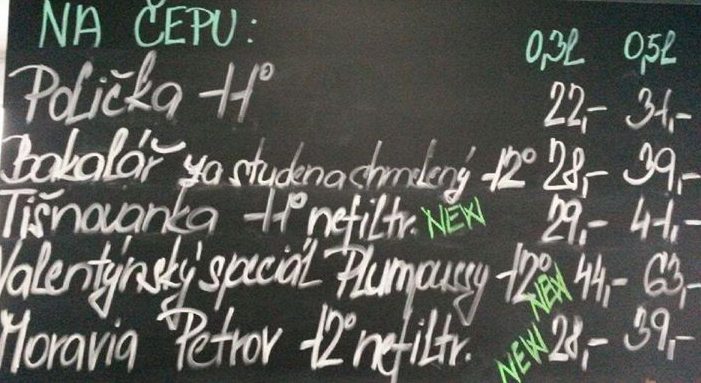 NA ČEPU: 0,3l 0,5l
Polička 11° 22,- 31,-
Bakalář za studena chmelený 12° 28,- 39,-
Tišnovanka 11° nefiltr. NEW 29,- 41,-
Valentýnský speciál Plumpussy 12° NEW 44,- 63,-
Moravia Petrov 12° nefiltr. NEW 28,- 39,-